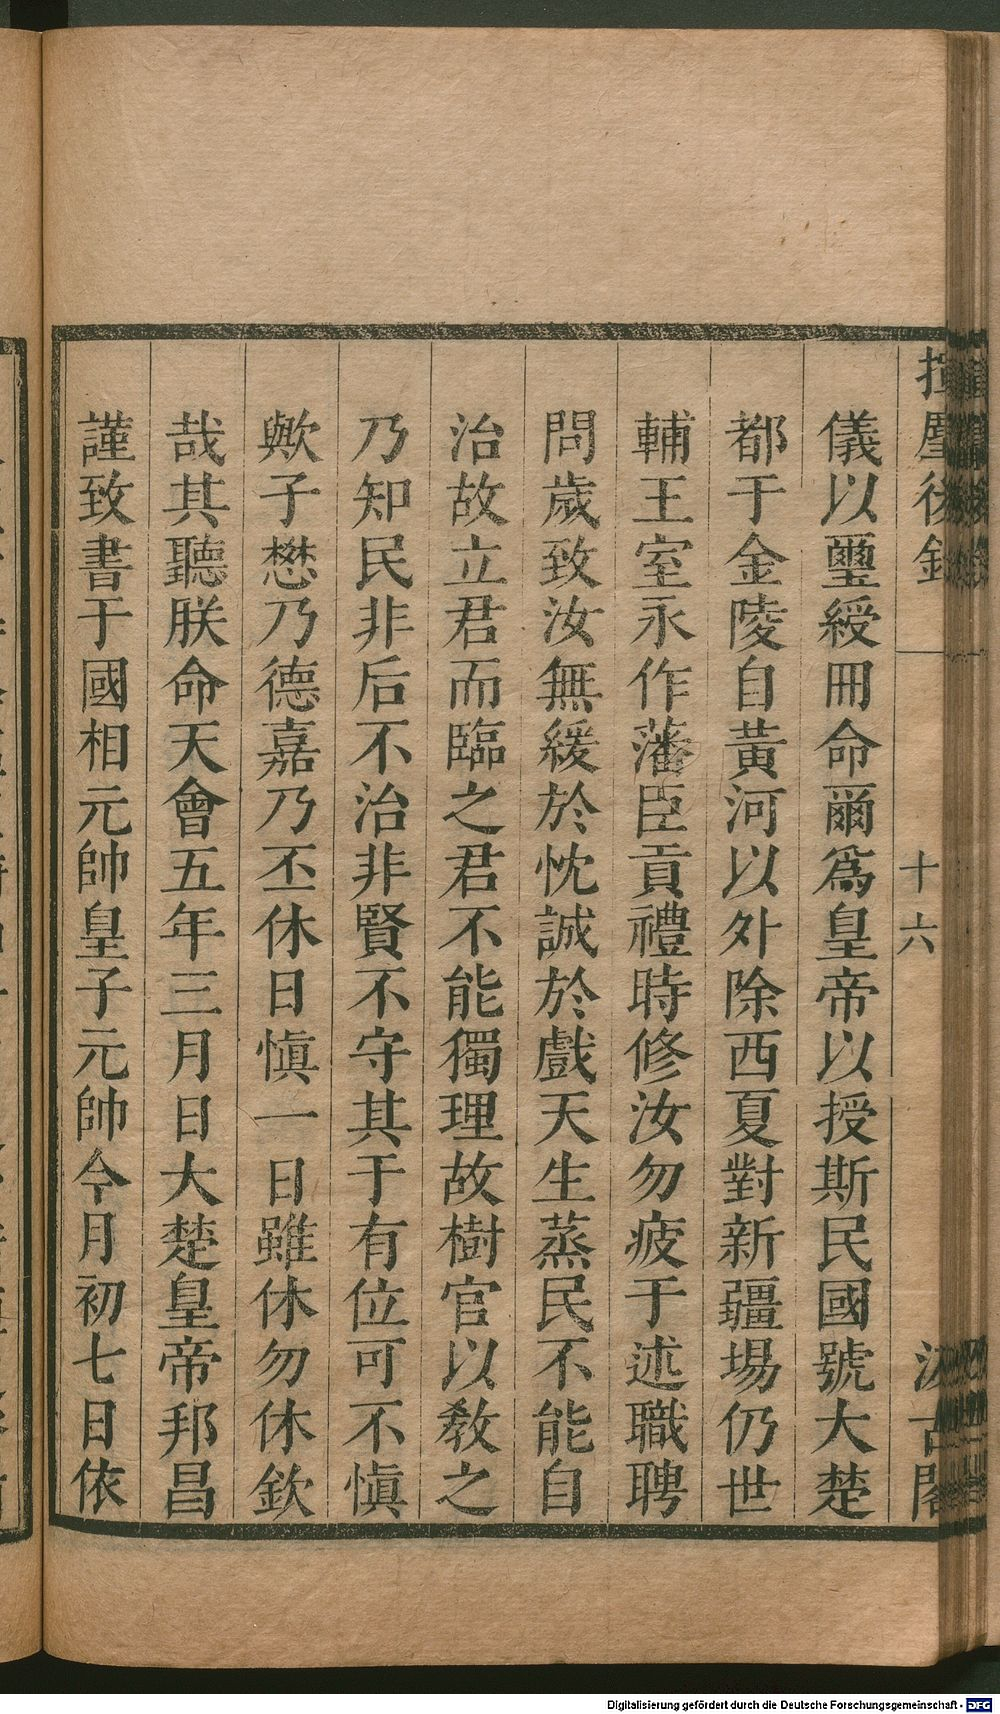 揮麈後錄
十六
汲古閣
儀以璽綬冊命爾爲皇帝以授斯民國號大楚
都于金陵自黃河以外除西夏對新疆場仍世
輔王室永作藩臣貢禮時修汝勿疲于述職聘
問歲致汝無緩於忱誠於戲天生蒸民不能自
治故立君而臨之君不能獨理故樹官以敎之
乃知民非后不治非賢不守其于有位可不愼
歟子懋乃德嘉乃丕休日愼一日雖休勿休欽
哉其聽朕命天會五年三月日大楚皇帝邦昌
謹致書于國相元帥皇子元帥今月初七日依
Digitalisierung gefördert durch die Deutsche Forschungsgemeinschaft - DFG